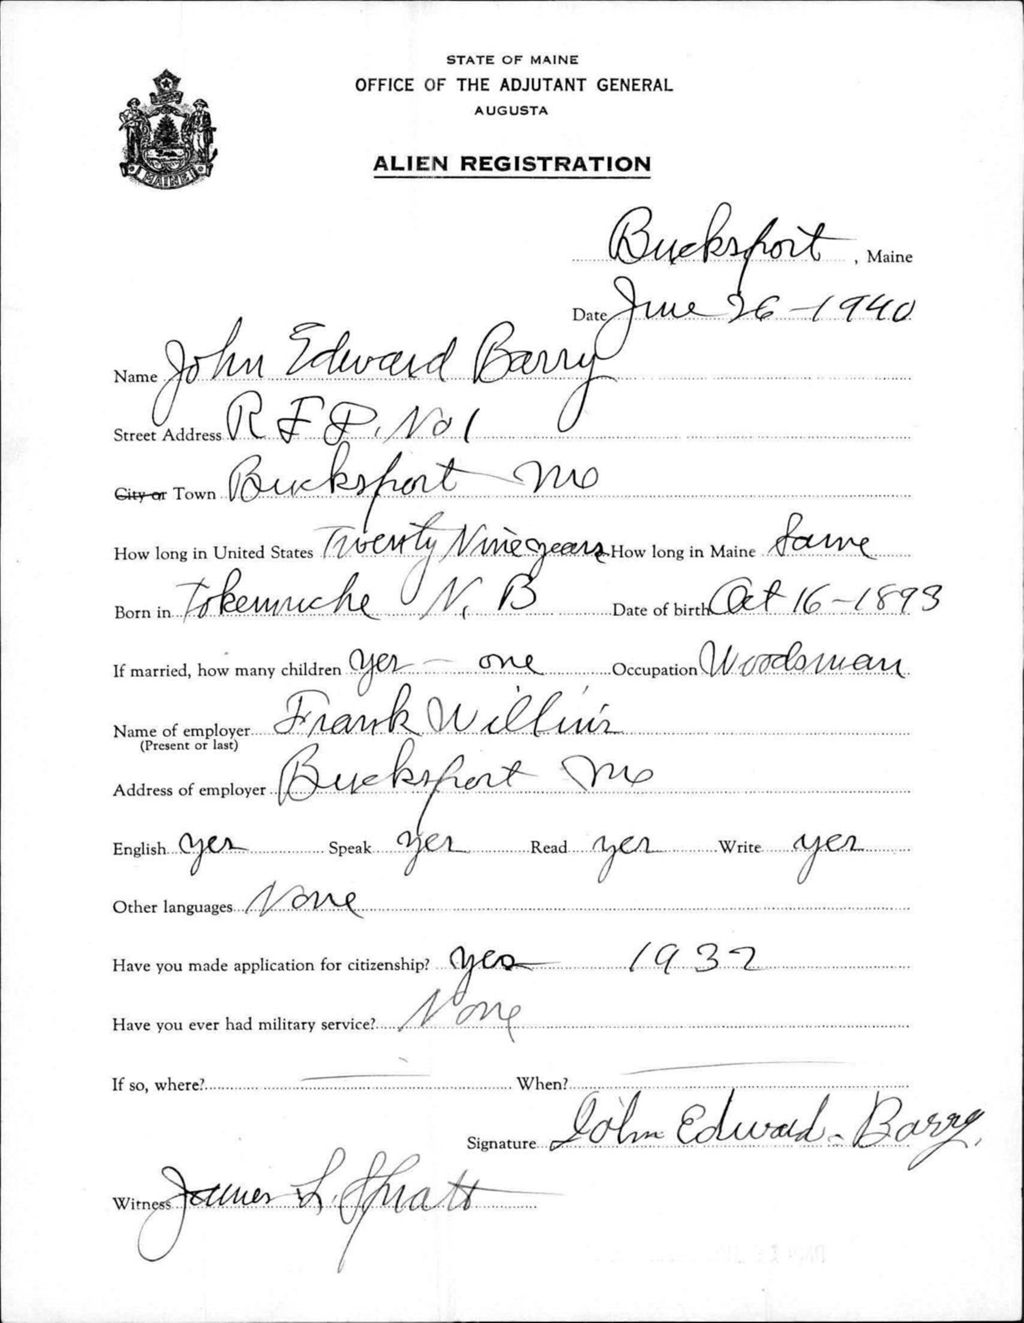 STATE OF MAINE
OFFICE OF THE ADJUTANT GENERAL
AUGUSTA
ALIEN REGISTRATION
MAINE
Bucksport, Maine
Date June 26-1940
Name John Edward Barry
Street Address R F D. No 1
City or Town Bucksport Me
How long in United States Twenty Nine years How long in Maine Same
Born in N. B Date of birth Oct 16-1893
If married, how many children yes - one Occupation Woodsman
Name of employer Frank
(Present or last)
Address of employer Bucksport Me
English yes Speak yes Read yes Write yes
Other languages None
Have you made application for citizenship? yes 1932
Have you ever had military service? None
If so, where? — When? —
Signature John Edward Barry.
Witness James L. Spratt